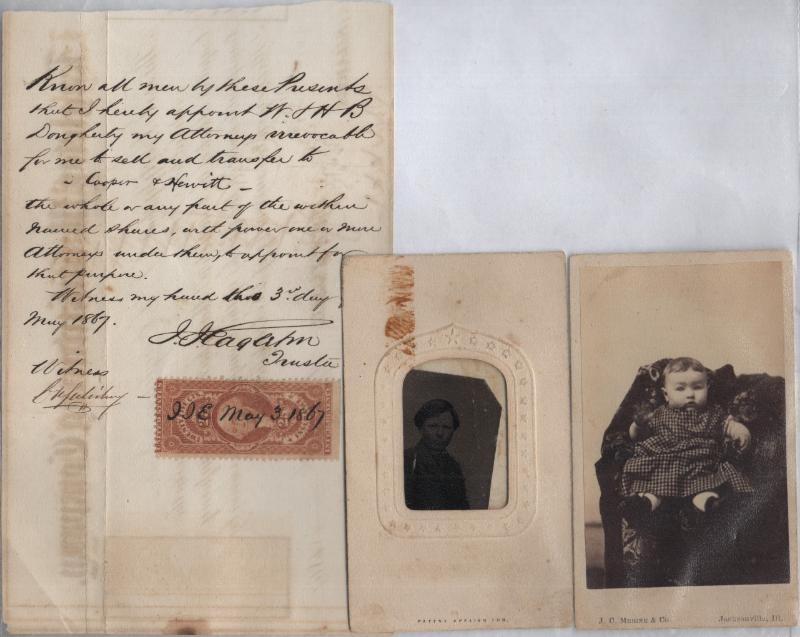 Know all men by these Presents
that I hereby appoint W. & H B
Dougherty my Attorneys irrevocable
for me to sell and transfer to
- Cooper & Hewitt -
the whole or any part of the within
named shares, with power one or more
Attorneys under them, to appoint for
that purpose.
Witness my hand this 3rd day
May 1867.
Trustee
Witness
J.J.E. May 3. 1867
PATENT APPLIED FOR.
J. C. Merine & Co. Jacksonville, Ill.